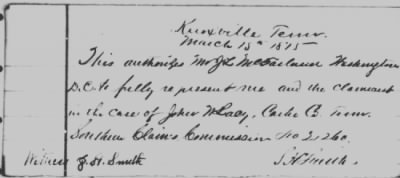 Knoxville Tenn.
March 15th 1875
This authorizes Mr J L McFarlane Washington
D.C. to fully represent me and the claimant
in the case of John W Lacy, Cocke Co. Tenn.
Southern Claims Commission No 2,260.
Witness J. H. Smith S. H. Smith